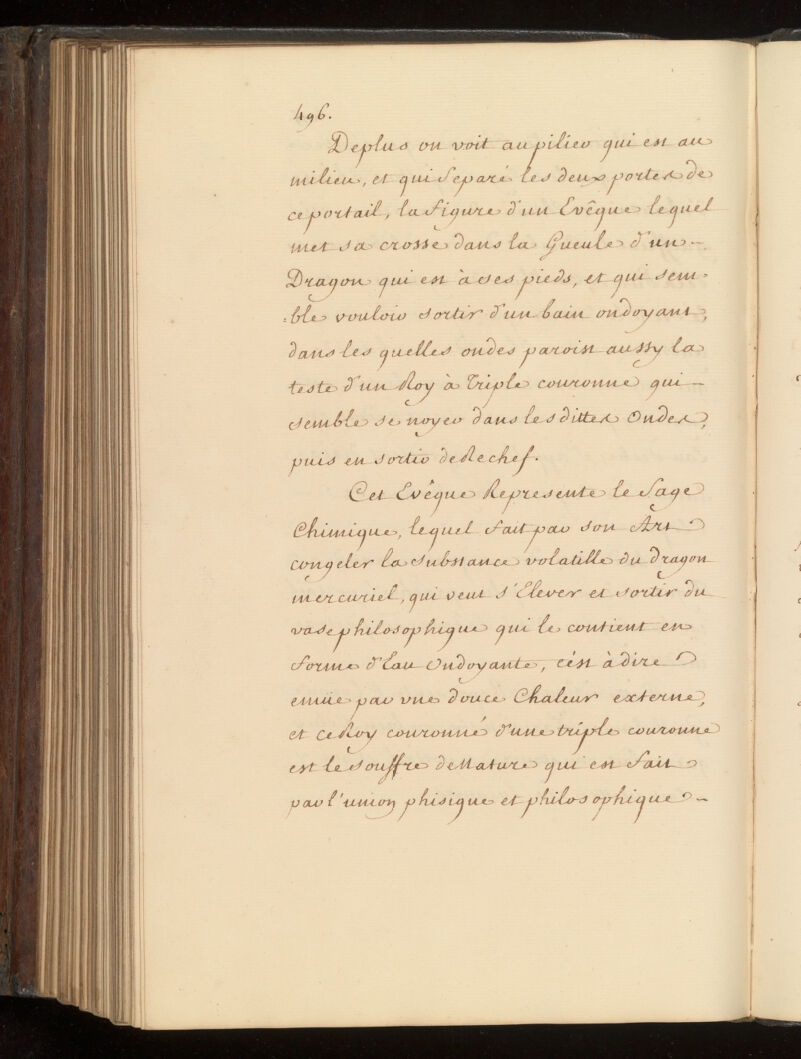 496.
Deplus on voit au pilier qui est au
milieu, et qui Separé les deux portes de
ce portail, la figure d'un Evêque lequel
met sa crosse dans la Gueule d'un -
Dragon qui est à ses pieds, et qui sem-
:ble vouloir sortir d'un bain ondoyant,
dans les quelles ondes paroist aussy la
teste d'un Roy à Triple couronne qui -
semble se noyer dans les dittes Ondes,
puis en sortir de Rechef.
Cet Evêque Represente le Sage
Chimique, lequel fait par son Art
congeler la substance volatille du dragon
mercuriel, qui veut s'Elever et sortir du
vase philosophique qui le contient en
forme d'Eau Ondoyante, c'ést à dire
emüe par vne douce Chaleur externe,
et ce Roy couronné d'une triple couronne
est le souffre de Nature qui est fait
par l'union phisique et philosophique -